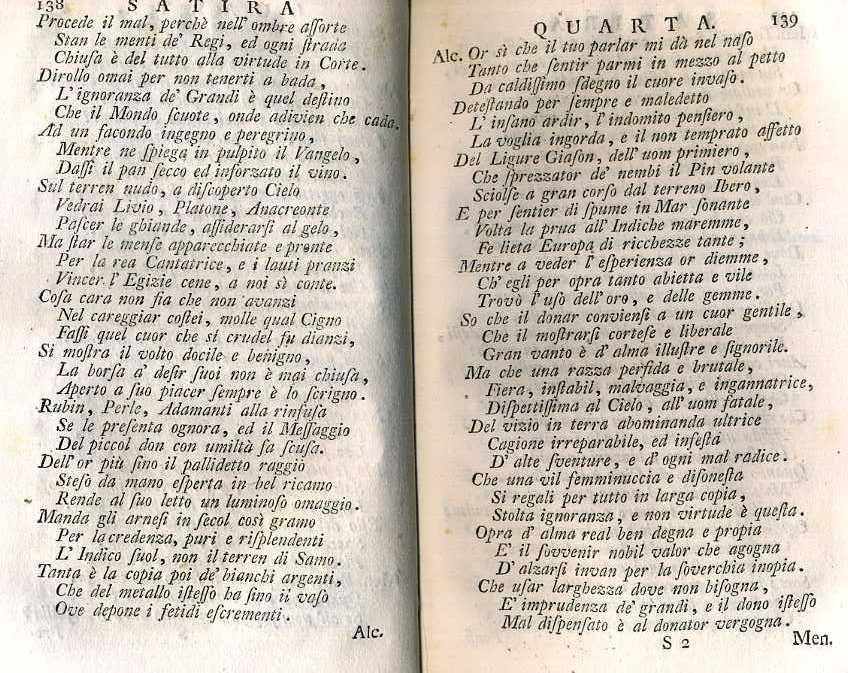 138 SATIRA
Procede il mal, perchè nell' ombre aſſorte
Stan le menti de' Regi, ed ogni ſtrada
Chiuſa è del tutto alla virtude in Corte.
Dirollo omai per non tenerti a bada,
L' ignoranza de' Grandi è quel deſtino
Che il Mondo ſcuote, onde adivien che cada.
Ad un facondo ingegno e peregrino,
Mentre ne ſpiega in pulpito il Vangelo,
Daſſi il pan ſecco ed inforzato il vino.
Sul terren nudo, a diſcoperto Cielo
Vedrai Livio, Platone, Anacreonte
Paſcer le ghiande, aſſiderarſi al gelo,
Ma ſtar le menſe apparecchiate e pronte
Per la rea Cantatrice, e i lauti pranzi
Vincer l' Egizie cene, a noi sì conte.
Coſa cara non fia che non avanzi
Nel careggiar coſtei, molle qual Cigno
Faſſi quel cuor che sì crudel fu dianzi,
Si moſtra il volto docile e benigno,
La borſa a' deſir ſuoi non è mai chiuſa,
Aperto a ſuo piacer ſempre è lo ſcrigno.
Rubin, Perle, Adamanti alla rinfuſa
Se le preſenta ognora, ed il Meſſaggio
Del piccol don con umiltà fa ſcuſa.
Dell' or più fino il pallidetto raggio
Steſo da mano eſperta in bel ricamo
Rende al ſuo letto un luminoſo omaggio.
Manda gli arneſi in ſecol così gramo
Per la credenza, puri e riſplendenti
L' Indico ſuol, non il terren di Samo.
Tanta è la copia poi de' bianchi argenti,
Che del metallo iſteſſo ha fino il vaſo
Ove depone i fetidi eſcrementi.
Alc.
QUARTA. 139
Alc. Or sì che il tuo parlar mi dà nel naſo
Tanto che ſentir parmi in mezzo al petto
Da caldiſſimo ſdegno il cuore invaſo.
Deteſtando per ſempre e maledetto
L' inſano ardir, l' indomito penſiero,
La voglia ingorda, e il non temprato affetto
Del Ligure Giaſon, dell' uom primiero,
Che ſprezzator de' nembi il Pin volante
Sciolſe a gran corſo dal terreno Ibero,
E per ſentier di ſpume in Mar ſonante
Volta la prua all' Indiche maremme,
Fe lieta Europa di ricchezze tante;
Mentre a veder l' eſperienza or diemme,
Ch' egli per opra tanto abietta e vile
Trovò l' uſo dell' oro, e delle gemme.
So che il donar convienſi a un cuor gentile,
Che il moſtrarſi corteſe e liberale
Gran vanto è d' alma illuſtre e ſignorile.
Ma che una razza perfida e brutale,
Fiera, inſtabil, malvaggia, e ingannatrice,
Diſpettiſſima al Cielo, all' uom fatale,
Del vizio in terra abominanda ultrice
Cagione irreparabile, ed infeſta
D' alte ſventure, e d' ogni mal radice.
Che una vil femminuccia e diſoneſta
Si regali per tutto in larga copia,
Stolta ignoranza, e non virtude è queſta.
Opra d' alma real ben degna e propia
E' il ſovvenir nobil valor che agogna
D' alzarſi invan per la ſoverchia inopia.
Che uſar larghezza dove non biſogna,
E' imprudenza de' grandi, e il dono iſteſſo
Mal diſpenſato è al donator vergogna.
S 2 Men.